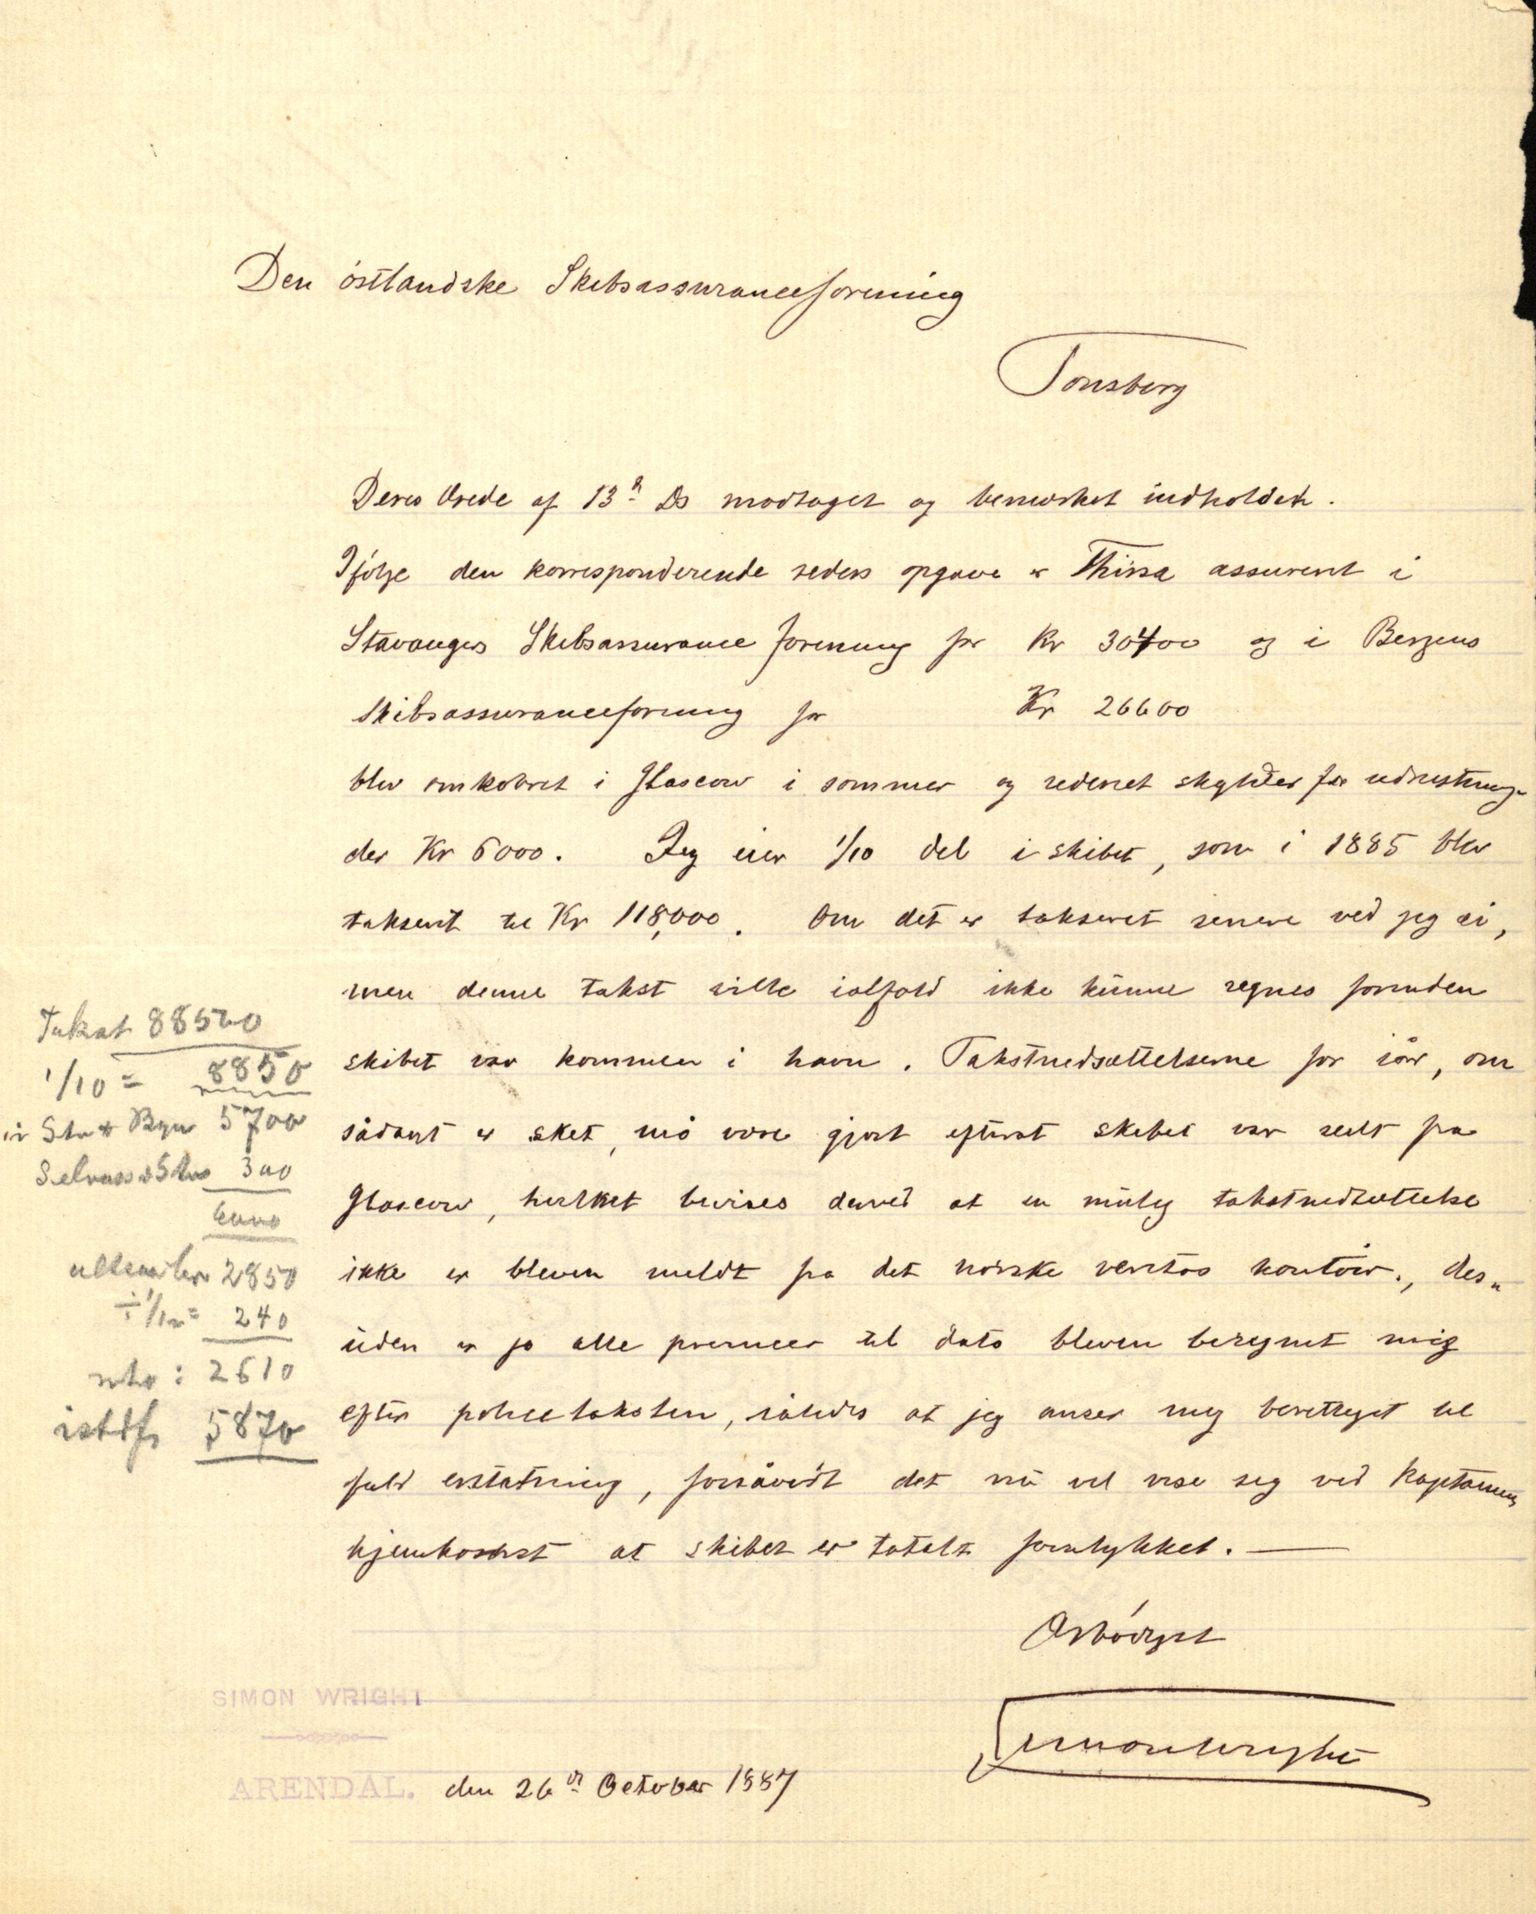 Den östlandske Skibsassuranceforening
Tonsberg
Deres Ærede af 13de Ds modtaget og bemærket indholdet.
Ifölge den korresponderende reders opgave er Thirza assureret i
Stavangers Skibsassurance forening for Kr 30400 og i Bergens
Skibsassuranceforening for Kr 26600
blev omkobret i Glascow i sommer og rederiet skylder for udrustning
der Kr 6000. Jeg eier 1/10 del i skibet, som i 1885 blev
takseret til Kr 118,000. Om det er takseret senere ved jeg ei,
men denne takst vilde ialfald ikke kunne regnes forinden
skibet var kommen i havn. Takstnedsættelserne for iår, om
sådant er sket, må være gjort efterat skibet var seilt fra
Glascow, hvilket bevises derved at en mulig takstnedsættelse
ikke er bleven meldt fra det norske veritas kontoir., des"
uden er jo alle premier til dato bleven beregnet mig
efter policetaksten, således at jeg anser mig berettiget til
fuld erstatning, forsåvidt det nu vil vise seg ved kaptainens
hjemkomst at skibet er totalt forulykket. —
Ærbödigst
Simon Wright
SIMON WRIGHT
ARENDAL. den 26de October 1887
Takst 88500
1/10 = 8850
i Stv + Bgn 5700
Selvass 300
6000
2850
÷ 1/12 = 240
2610
5870